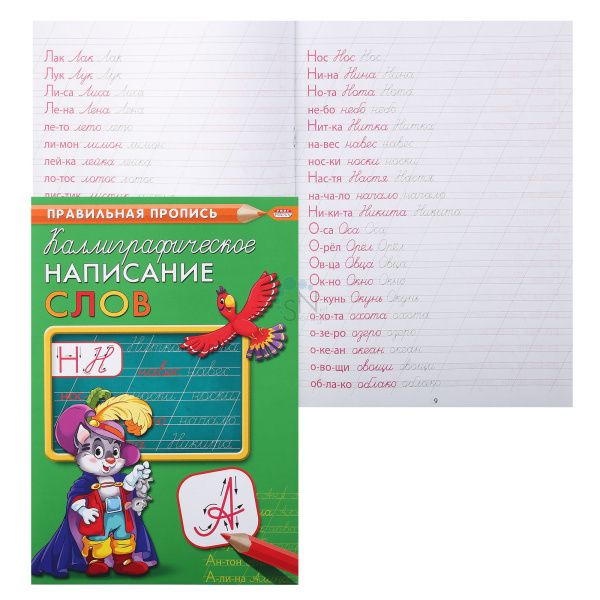 Лак Лак Лак
Лук Лук Лук
Ли-са Лиса Лиса
Ле-на Лена Лена
ле-то лето лето
ли-мон лимон лимон
лей-ка лейка лейка
ло-тос лотос лотос
лис-тик листик листик
Нос Нос Нос
Ни-на Нина Нина
Но-та Нота Нота
не-бо небо небо
Нит-ка Нитка Нитка
на-вес навес навес
нос-ки носки носки
Нас-тя Настя Настя
на-ча-ло начало начало
Ни-ки-та Никита Никита
О-са Оса Оса
О-рёл Орёл Орёл
Ов-ца Овца Овца
Ок-но Окно Окно
О-кунь Окунь Окунь
о-хо-та охота охота
о-зе-ро озеро озеро
о-ке-ан океан океан
о-во-щи овощи овощи
об-ла-ко облако облако
9
ПРАВИЛЬНАЯ ПРОПИСЬ
Каллиграфическое
НАПИСАНИЕ
СЛОВ
Н Н
Нитка
навес навес
нос носки носки
начало
Никита
А
Ан-тон
А-ли-на Алина